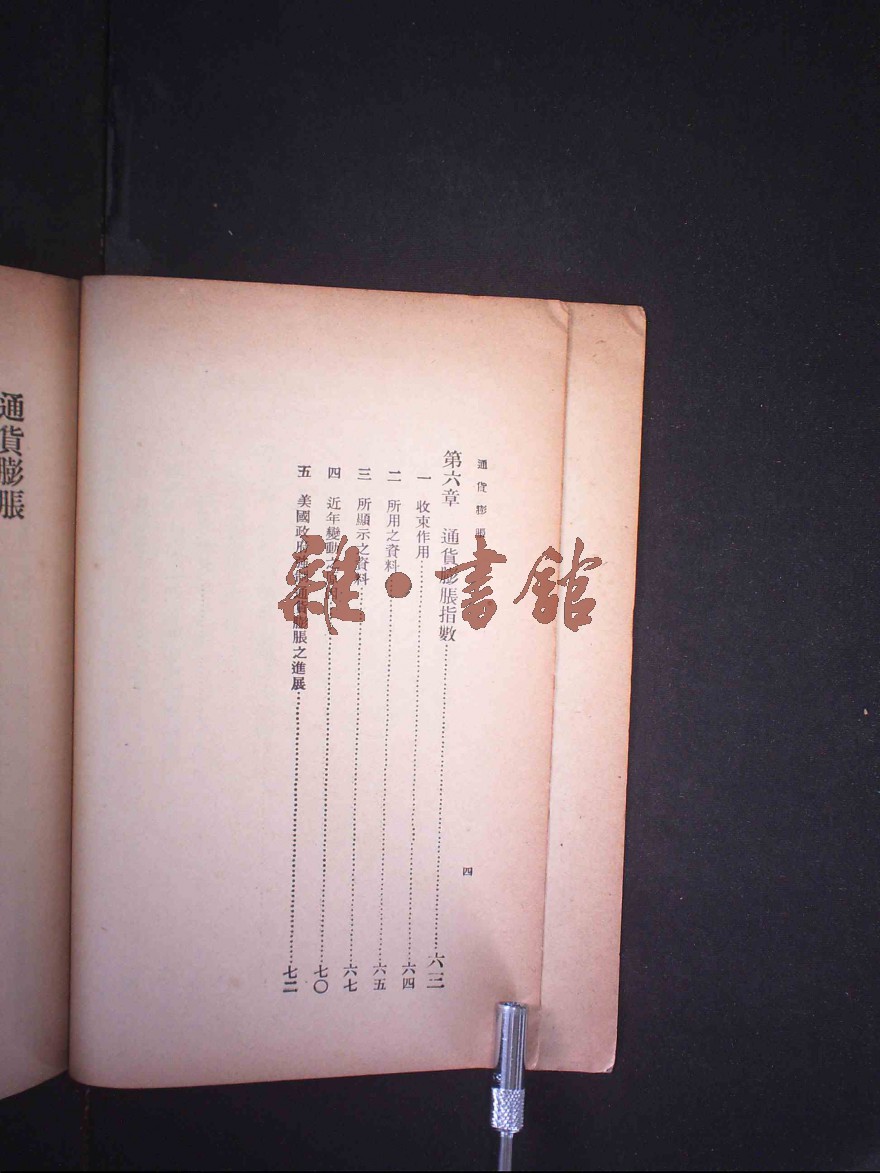 通貨膨脹
第六章 通貨膨脹指數……六三
一 收束作用……六四
二 所用之資料……六五
三 所顯示之資料……六七
四 近年變動之……七〇
五 美國政府 通貨膨脹之進展……七二
四
通貨膨脹
雜·書館